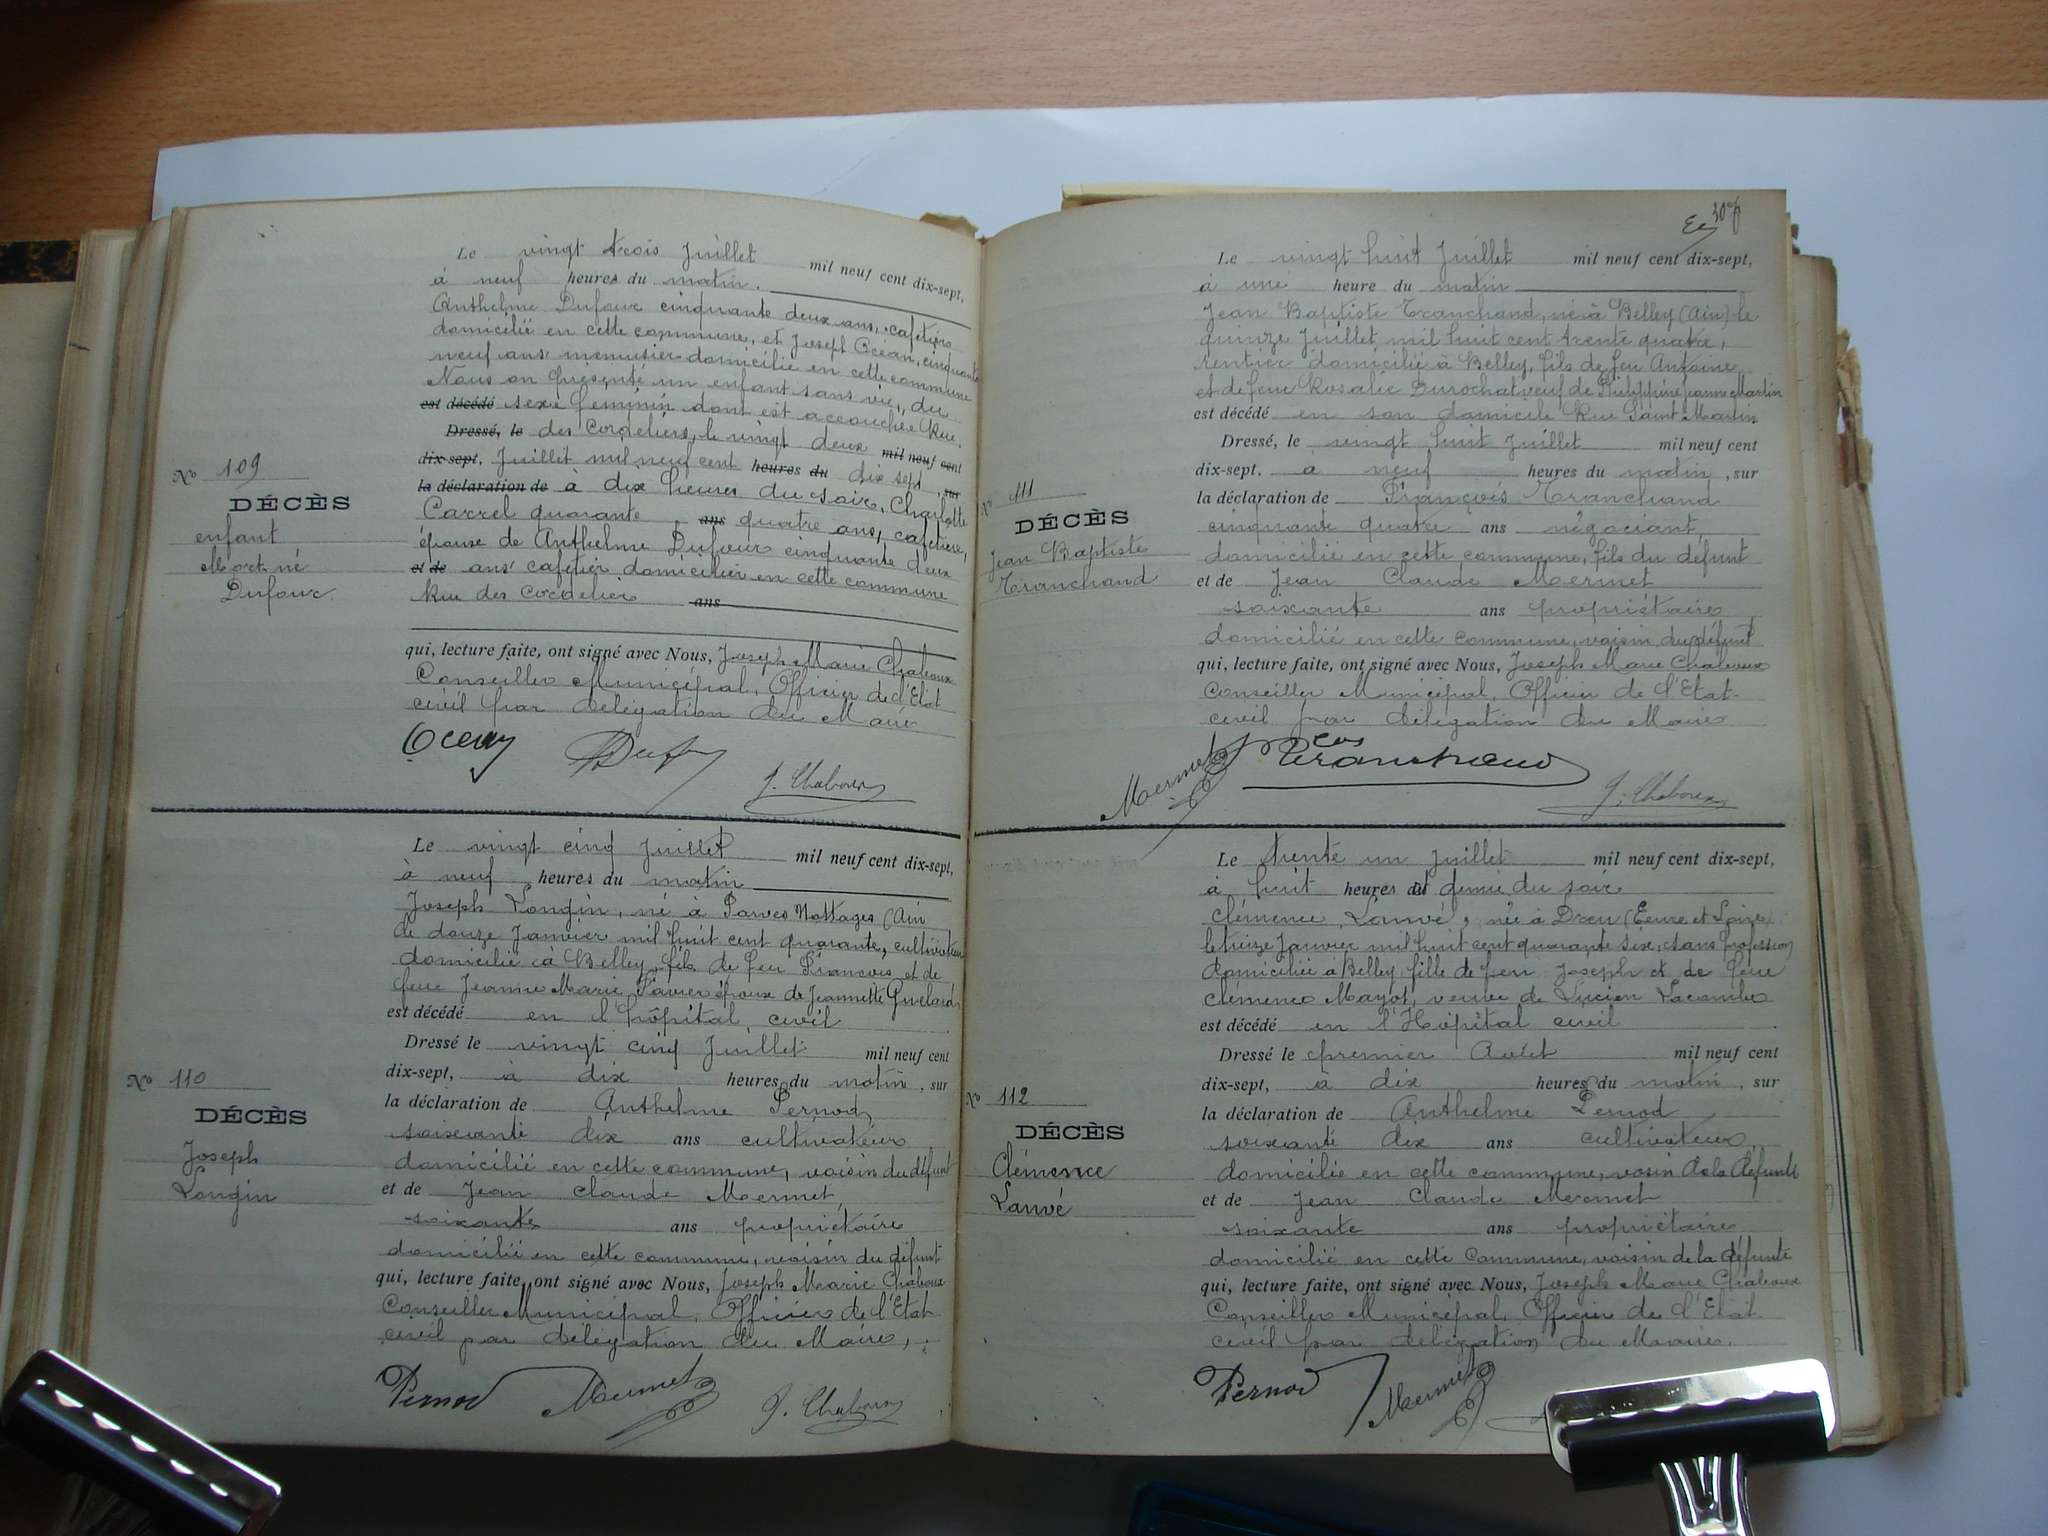 Le vingt trois Juillet mil neuf cent dix-sept,
à neuf heures du matin.
Anthelme Dufour cinquante deux ans, cafetier
domicilié en cette commune, et Joseph Océan, cinquante
neuf ans menuisier domicilié en cette commune
Nous on présenté un enfant sans vie, du
est décédé sexe féminin dont est accouchée Rue
Dressé, le des Cordeliers, le vingt deux mil neuf cent
dix-sept, Juillet mil neuf cent heures du dix sept, sur
la déclaration de à dix heures du soir, Charlotte
Carrel quarante ans quatre ans, cafetière,
épouse de Anthelme Dufour cinquante deux
et de ans cafetier domicilier en cette commune
Rue des Cordeliers ans
qui, lecture faite, ont signé avec Nous, Joseph Marie Chaboux
Conseiller Municipal, Officier de l'Etat
civil par délégation du Maire
J. Chaboux
No 109
DÉCÈS
enfant
Mort né
Dufour.
Le vingt cinq Juillet mil neuf cent dix-sept,
à neuf heures du matin
Joseph Longin, né à Parves Nattages (Ain
le douze Janvier mil huit cent quarante, cultivateur
domicilié à Belley, fils de feu François et de
feue Jeanne Marie Pavier époux de Jeannette
est décédé en l'hôpital civil
Dressé le vingt cinq Juillet mil neuf cent
dix-sept, à dix heures du matin, sur
la déclaration de Anthelme Pernod,
soixante dix ans cultivateur
domicilié en cette commune, voisin du défunt
et de Jean Claude Mermet,
soixante ans propriétaire
domicilié en cette commune, voisin du défunt
qui, lecture faite, ont signé avec Nous, Joseph Marie Chaboux
Conseiller Municipal, Officier de l'Etat
civil par délégation du Maire,
Pernod Mermet J. Chaboux
No 110
DÉCÈS
Joseph
Longin
307
Le vingt huit Juillet mil neuf cent dix-sept,
à une heure du matin
Jean Baptiste Tranchand, né à Belley (Ain) le
quinze Juillet mil huit cent trente quatre,
rentier domicilié à Belley, fils de feu Antoine
et de feue Rosalie Durochat veuf de Philippine Jeanne Martin
est décédé en son domicile Rue Saint Martin
Dressé, le vingt huit Juillet mil neuf cent
dix-sept. à neuf heures du matin, sur
la déclaration de François Tranchand
cinquante quatre ans négociant,
domicilié en cette commune, fils du défunt
et de Jean Claude Mermet
soixante ans propriétaire
domicilié en cette commune, voisin du défunt
qui, lecture faite, ont signé avec Nous, Joseph Marie Chaboux
Conseiller Municipal, Officier de l'Etat-
civil par délégation du Maire
Mermet Tranchand J. Chaboux
No 111
DÉCÈS
Jean Baptiste
Tranchand
Le trente un Juillet mil neuf cent dix-sept,
à huit heures et demie du soir
Clémence Lanvé, née à Dreu (Eure et Loire)
le treize Janvier mil huit cent quarante six, sans profession
domiciliée à Belley fille de feu Joseph et de feue
Clémence Mayot, veuve de Lucien Lacombe
est décédé en l'Hôpital civil
Dressé le premier Août mil neuf cent
dix-sept, à dix heures du matin, sur
la déclaration de Anthelme Pernod
soixante dix ans cultivateur,
domicilié en cette commune, voisin de la défunte
et de Jean Claude Mermet
soixante ans propriétaire
domicilié en cette Commune, voisin de la défunte
qui, lecture faite, ont signé avec Nous, Joseph Marie Chaboux
Conseiller Municipal, Officier de l'Etat
civil par délégation du Maire.
Pernod Mermet
No 112
DÉCÈS
Clémence
Lanvé